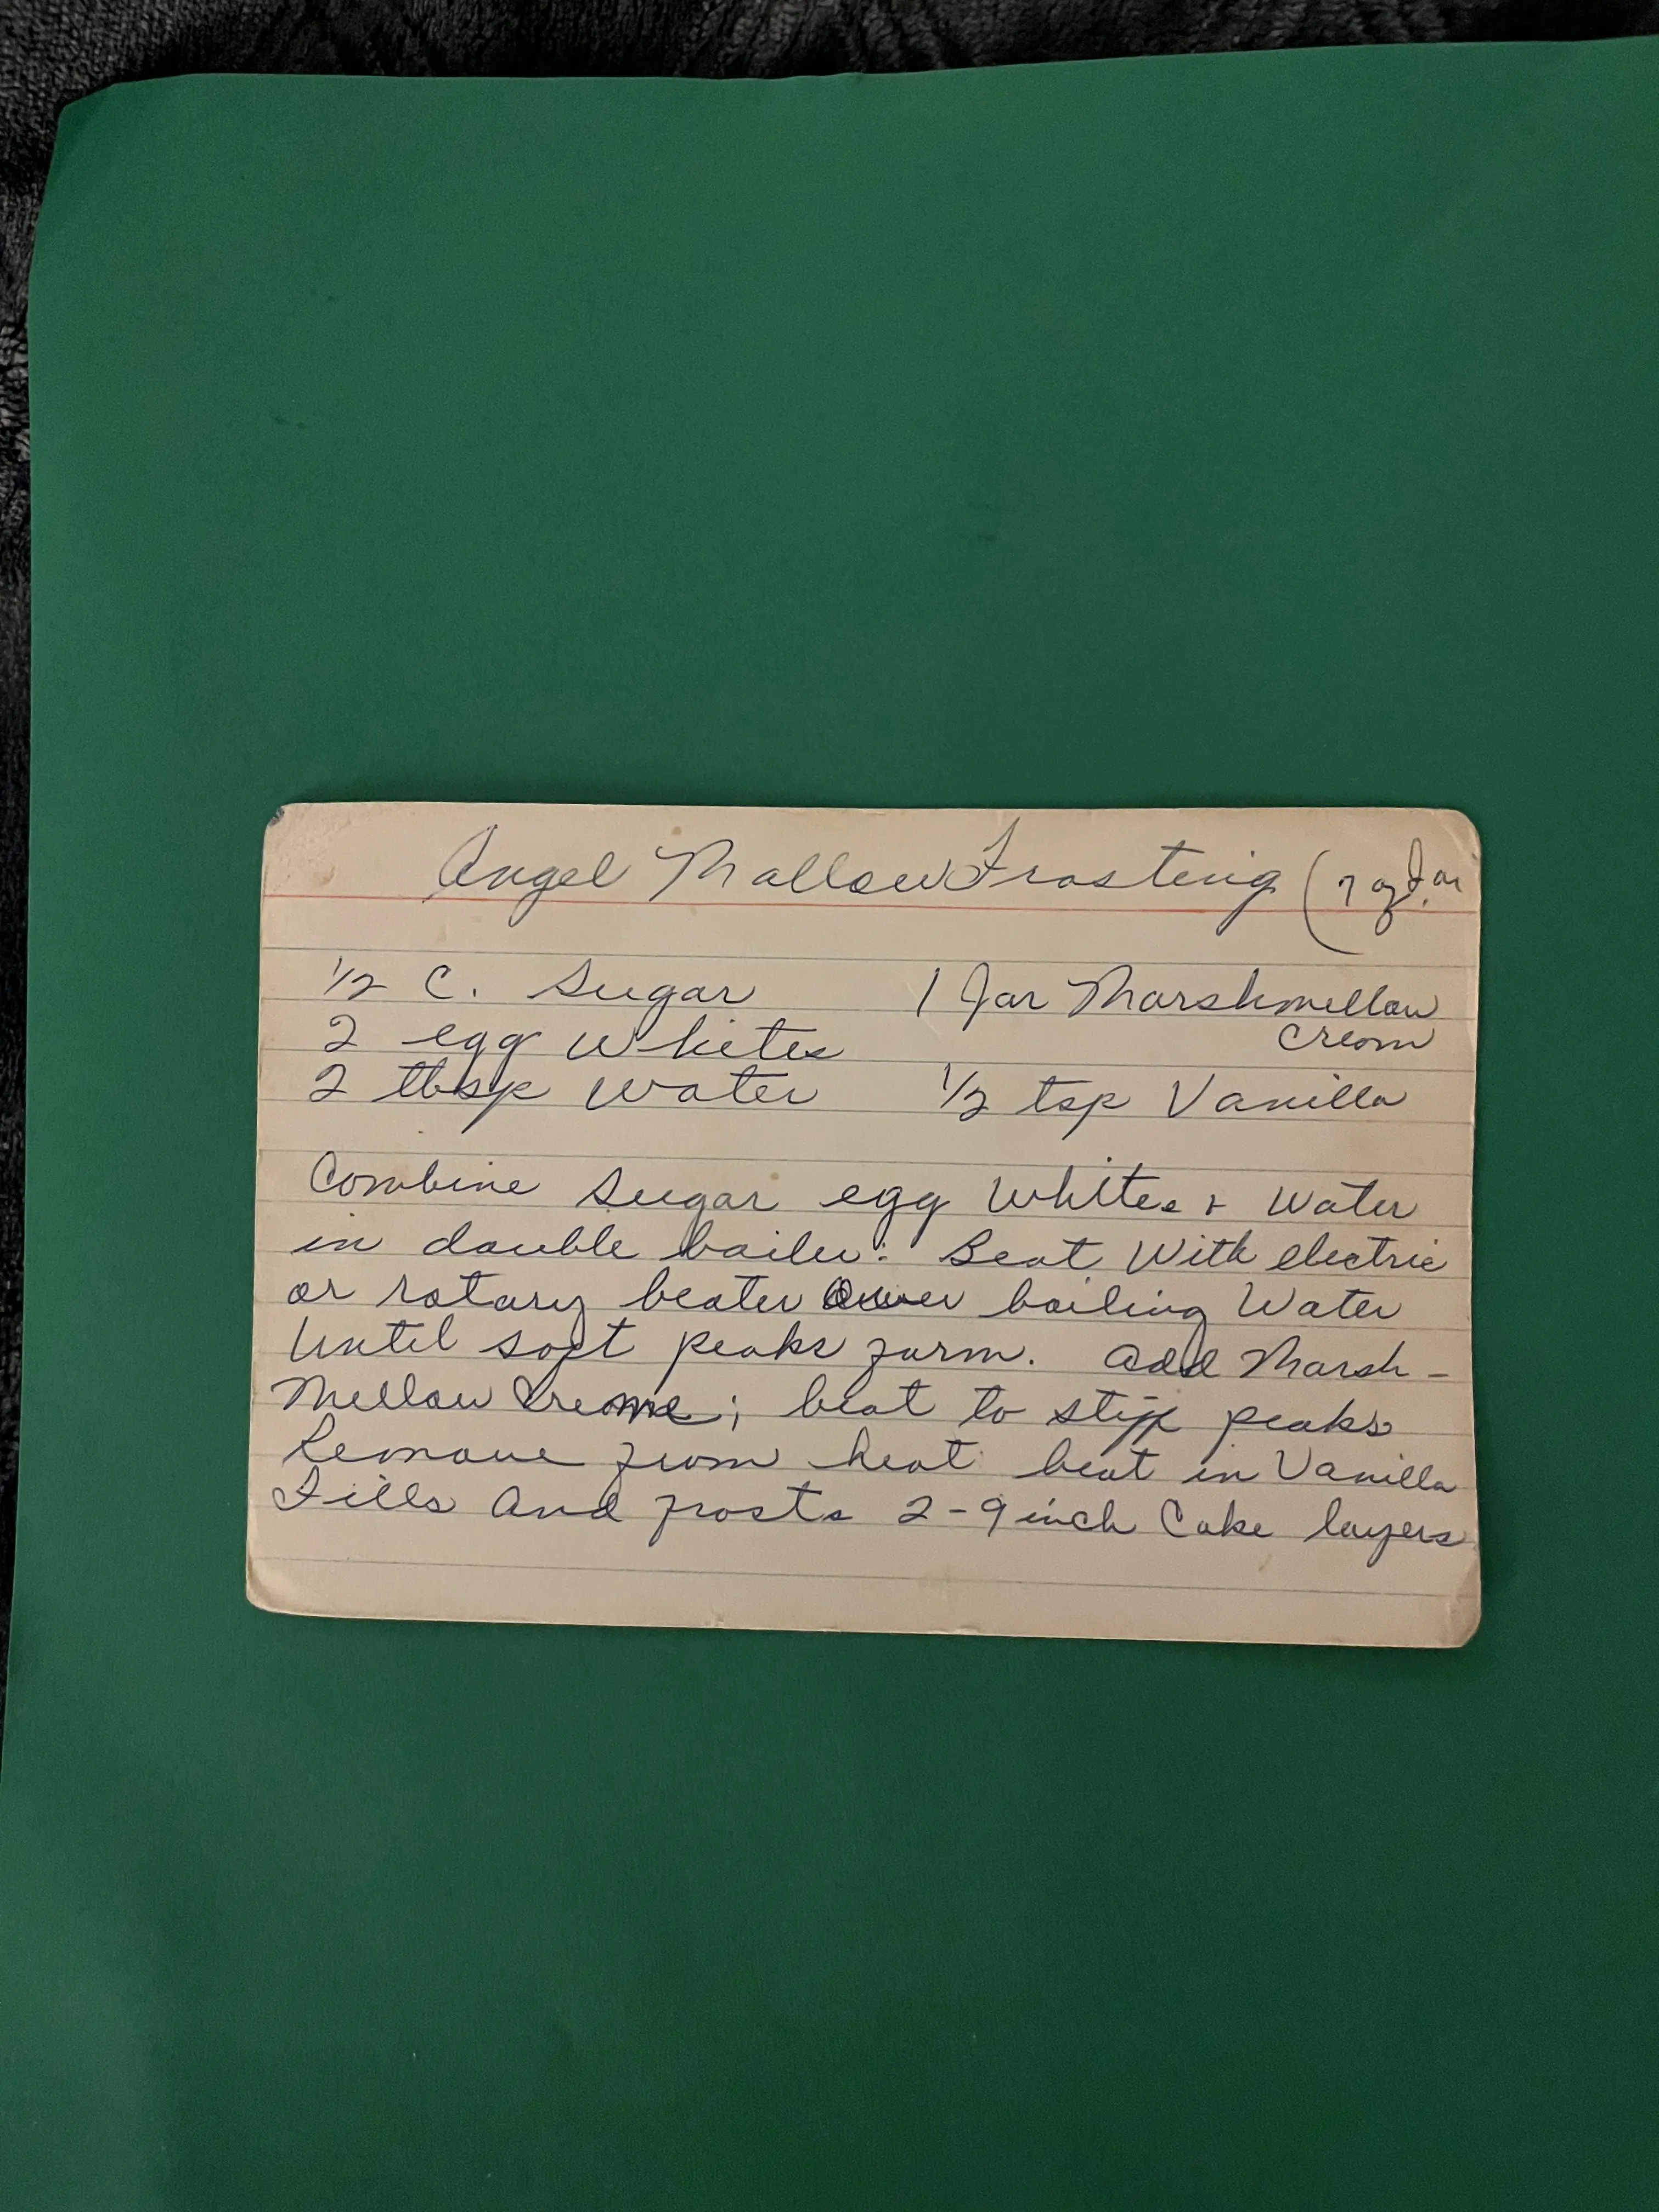 Angel Mallow Frosting (7 oz Jar
½ C. Sugar 1 Jar Marshmellow
Cream
2 egg Whites
2 tbsp Water ½ tsp Vanilla
Combine Sugar egg Whites + Water
in double boiler. Beat With electric
or rotary beater Over boiling Water
Until soft peaks form. Add Marsh-
Mellow Creme; beat to stiff peaks
Remove from heat beat in Vanilla
Fills And frosts 2-9 inch Cake layers